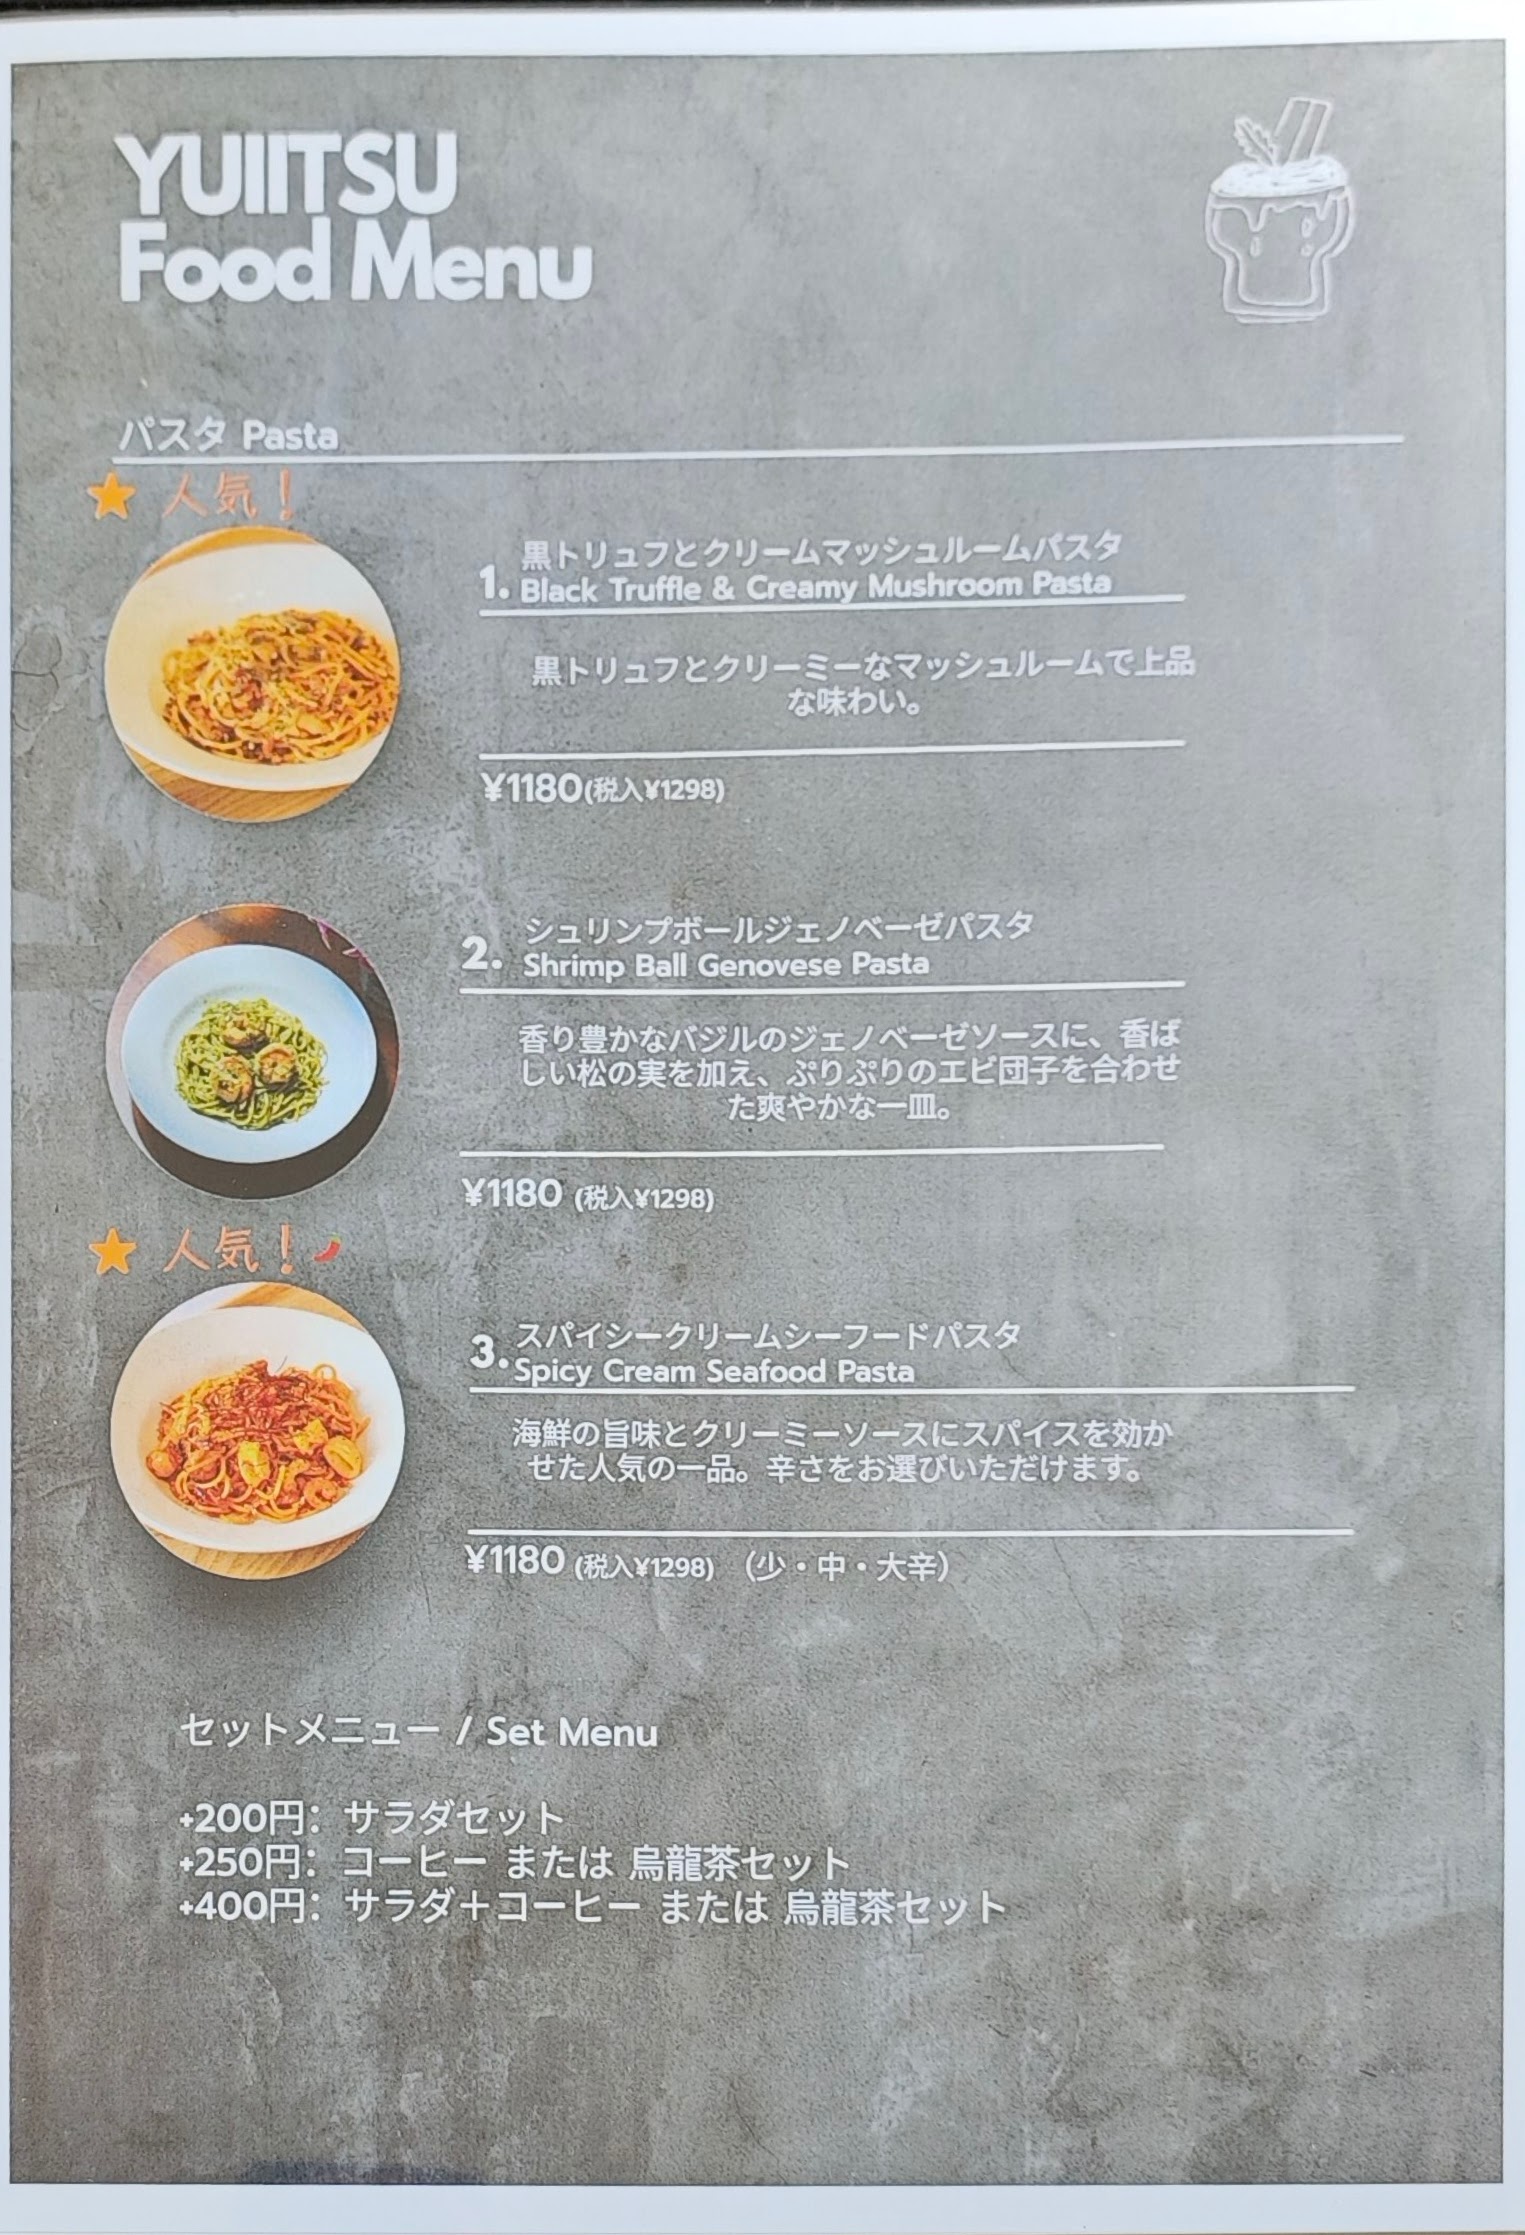 YUIITSU
Food Menu
パスタ Pasta
人気！
1. 黒トリュフとクリームマッシュルームパスタ
Black Truffle & Creamy Mushroom Pasta
黒トリュフとクリーミーなマッシュルームで上品
な味わい。
¥1180(税入¥1298)
2. シュリンプボールジェノベーゼパスタ
Shrimp Ball Genovese Pasta
香り豊かなバジルのジェノベーゼソースに、香ば
しい松の実を加え、ぷりぷりのエビ団子を合わせ
た爽やかな一皿。
¥1180 (税入¥1298)
人気！
3. スパイシークリームシーフードパスタ
Spicy Cream Seafood Pasta
海鮮の旨味とクリーミーソースにスパイスを効か
せた人気の一品。辛さをお選びいただけます。
¥1180 (税入¥1298) （少・中・大辛）
セットメニュー / Set Menu
+200円：サラダセット
+250円：コーヒー または 烏龍茶セット
+400円：サラダ＋コーヒー または 烏龍茶セット